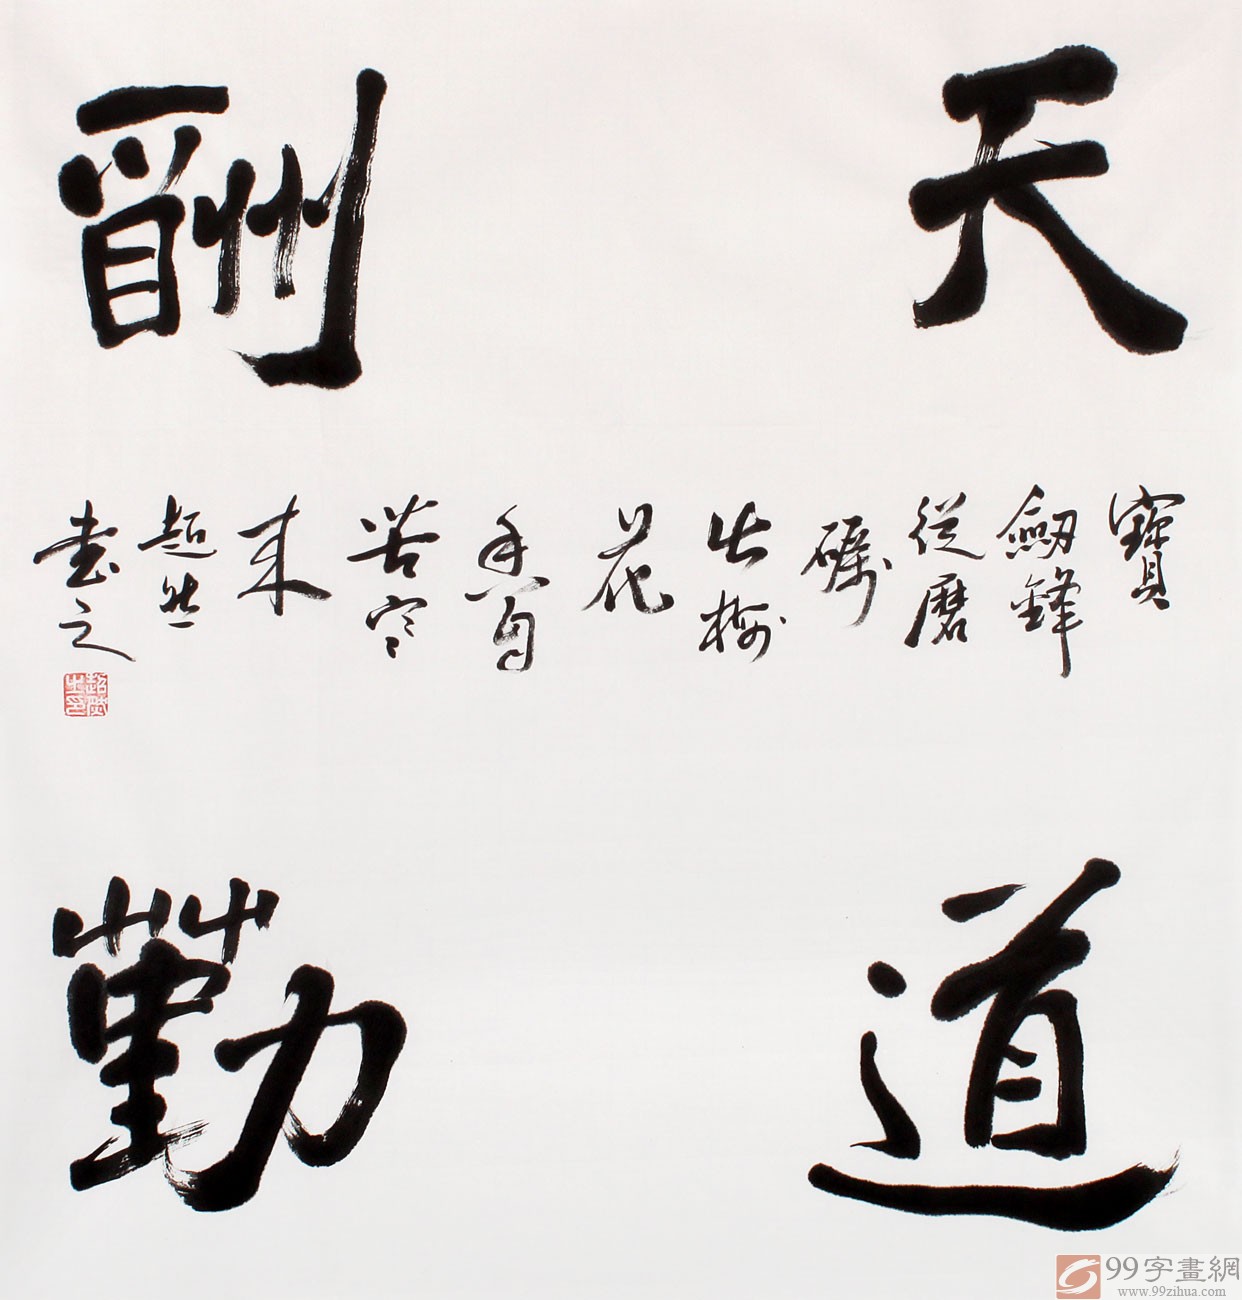 天道
酬勤
寶
劒鋒
從磨
礪
出梅
花
香自
苦寒
来
超然
书之
99字畫網
www.99zihua.com